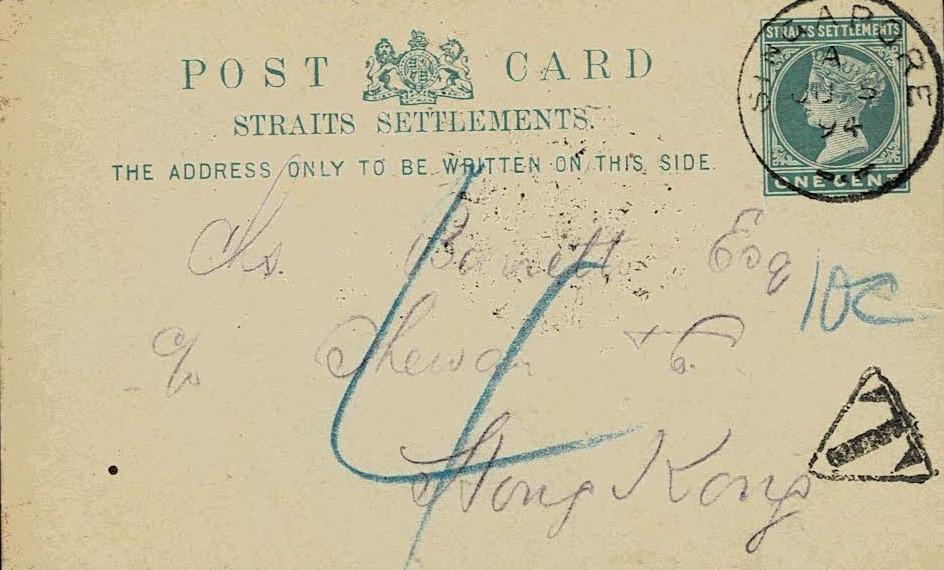 POST CARD
STRAITS SETTLEMENTS.
THE ADDRESS ONLY TO BE WRITTEN ON THIS SIDE.
STRAITS SETTLEMENTS
ONE CENT
SINGAPORE
A
JU 5
94
Esq
c/o Shewan & Co.
Hong Kong
10C
4
T